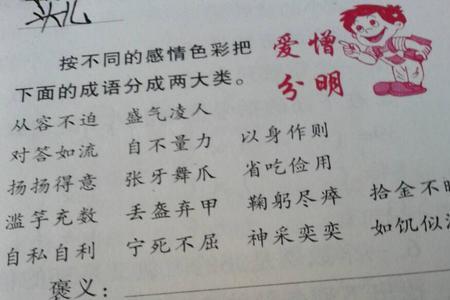 按不同的感情色彩把
下面的成语分成两大类。
爱憎
分明
从容不迫 盛气凌人
对答如流 自不量力 以身作则
扬扬得意 张牙舞爪 省吃俭用
滥竽充数 丢盔弃甲 鞠躬尽瘁 拾金不
自私自利 宁死不屈 神采奕奕 如饥似
褒义：